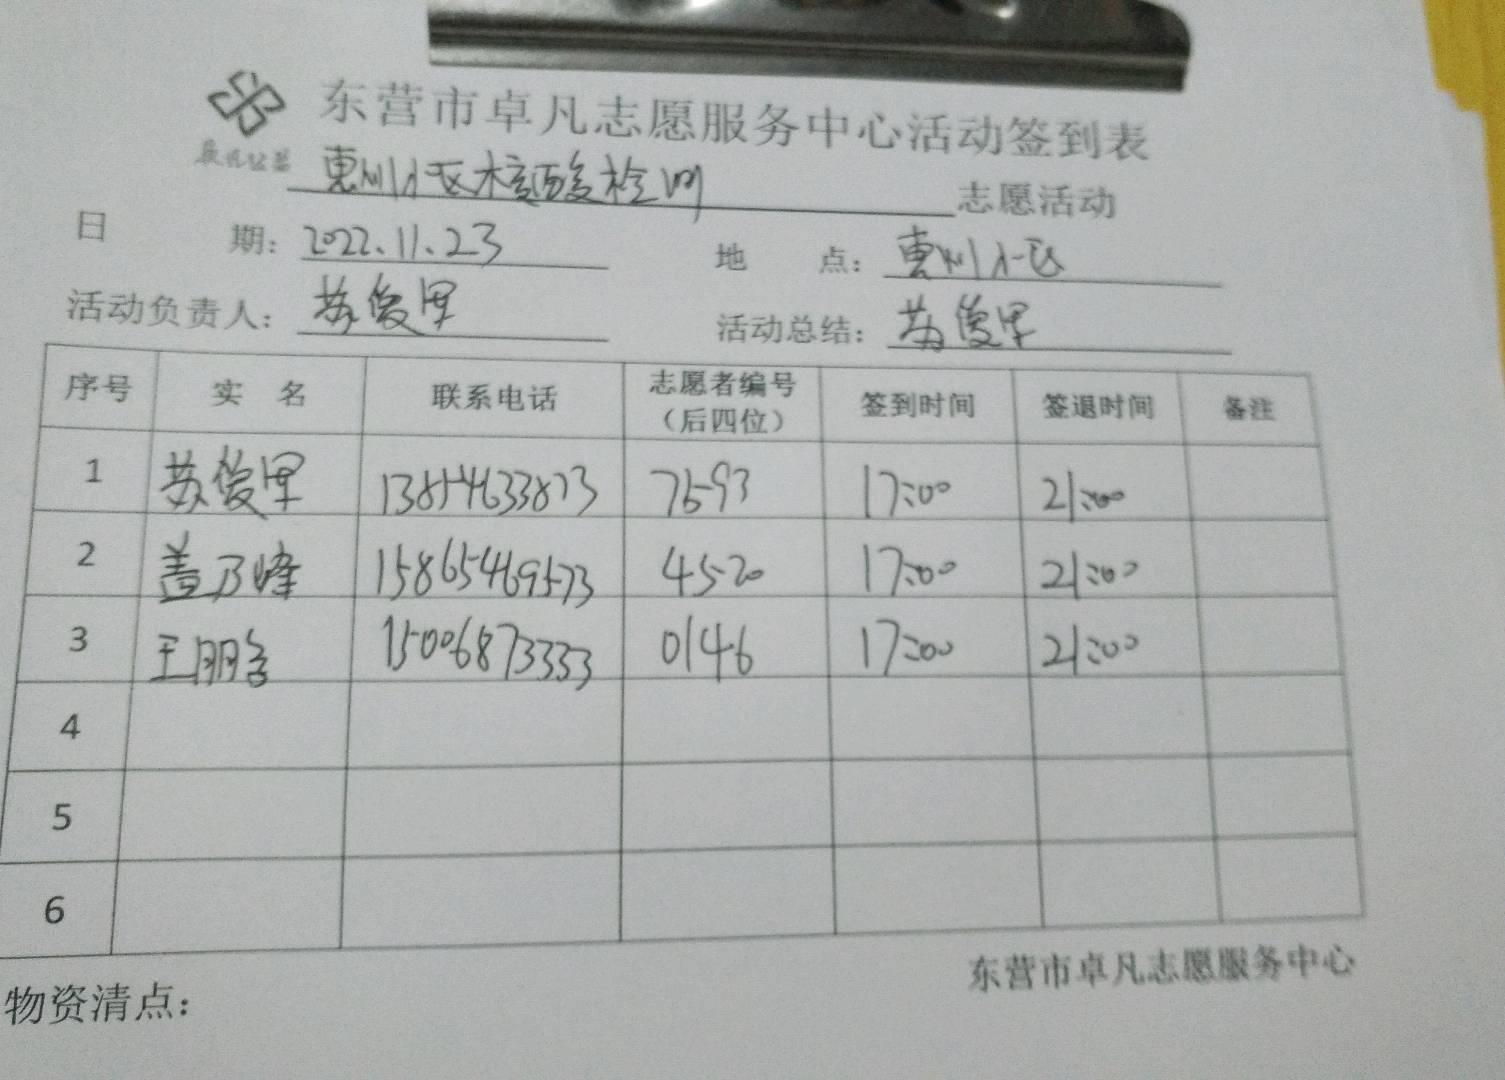 东营市卓凡志愿服务中心活动签到表
惠州小区核酸检测 志愿活动
日 期: 2022.11.23 地 点: 惠州小区
活动负责人: 苏俊军 活动总结: 苏俊军
序号 实 名 联系电话 志愿者编号（后四位） 签到时间 签退时间 备注
1 苏俊军 13854633873 7593 17:00 21:00
2 盖乃峰 15865469573 4520 17:00 21:00
3 王朋 15006873333 0146 17:00 21:00
4
5
6
东营市卓凡志愿服务中心
物资清点: